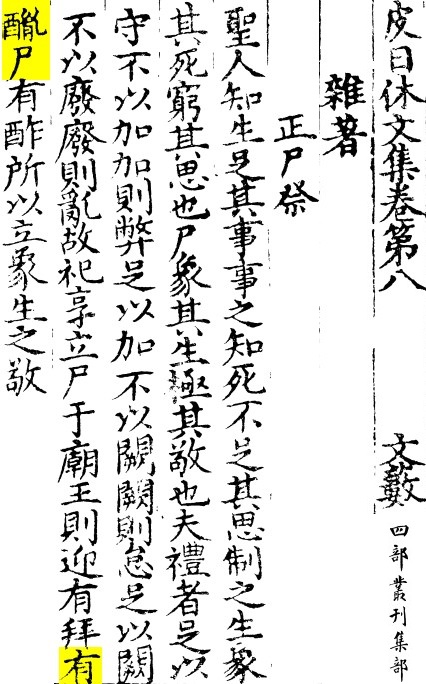 皮日休文集卷第八　文藪　四部叢刊集部
雜著
正尸祭
聖人知生足其事事之知死不足其思制之生象
其死窮其思也尸象其生極其敬也夫禮者足以
守不以加加則弊足以加不以闕闕則怠足以闕
不以廢廢則亂故祀享立尸于廟王則迎有拜有
酳尸有酢所以立象生之敬